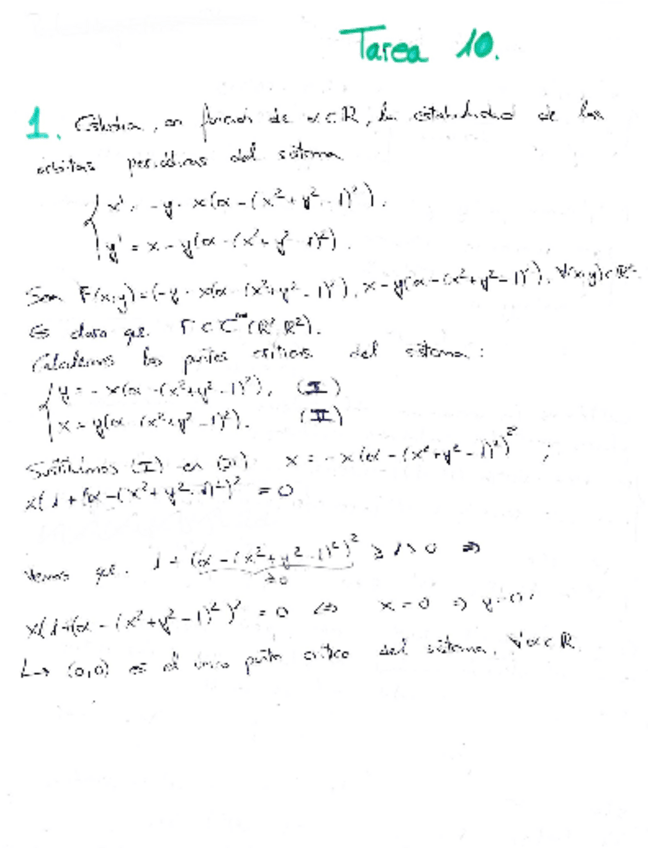 Tarea 10.
1. Estudia, en función de α∈ℝ, la estabilidad de las
órbitas periódicas del sistema
{ x' = -y - x(α - (x²+y²-1)²).
y' = x - y(α - (x²+y²-1)²).
Sea F(x,y) = (-y - x(α - (x²+y²-1)²), x - y(α - (x²+y²-1)²), ∀(x,y)∈ℝ².
Es claro que F∈C^∞(ℝ², ℝ²).
Calculemos los puntos críticos del sistema:
{ y = -x(α - (x²+y²-1)²), (I)
x = y(α - (x²+y²-1)²). (II)
Sustituimos (I) en (II) x = -x(α - (x²+y²-1)²)² ;
x(1 + (α - (x²+y²-1)²)² = 0
Vemos que 1 + (α - (x²+y²-1)²)² ≥ 1 > 0 ⇒
≥0
x(1+(α - (x²+y²-1)²)² = 0 ⇔ x = 0 ⇒ y = 0
↳ (0,0) es el único punto crítico del sistema, ∀α∈ℝ